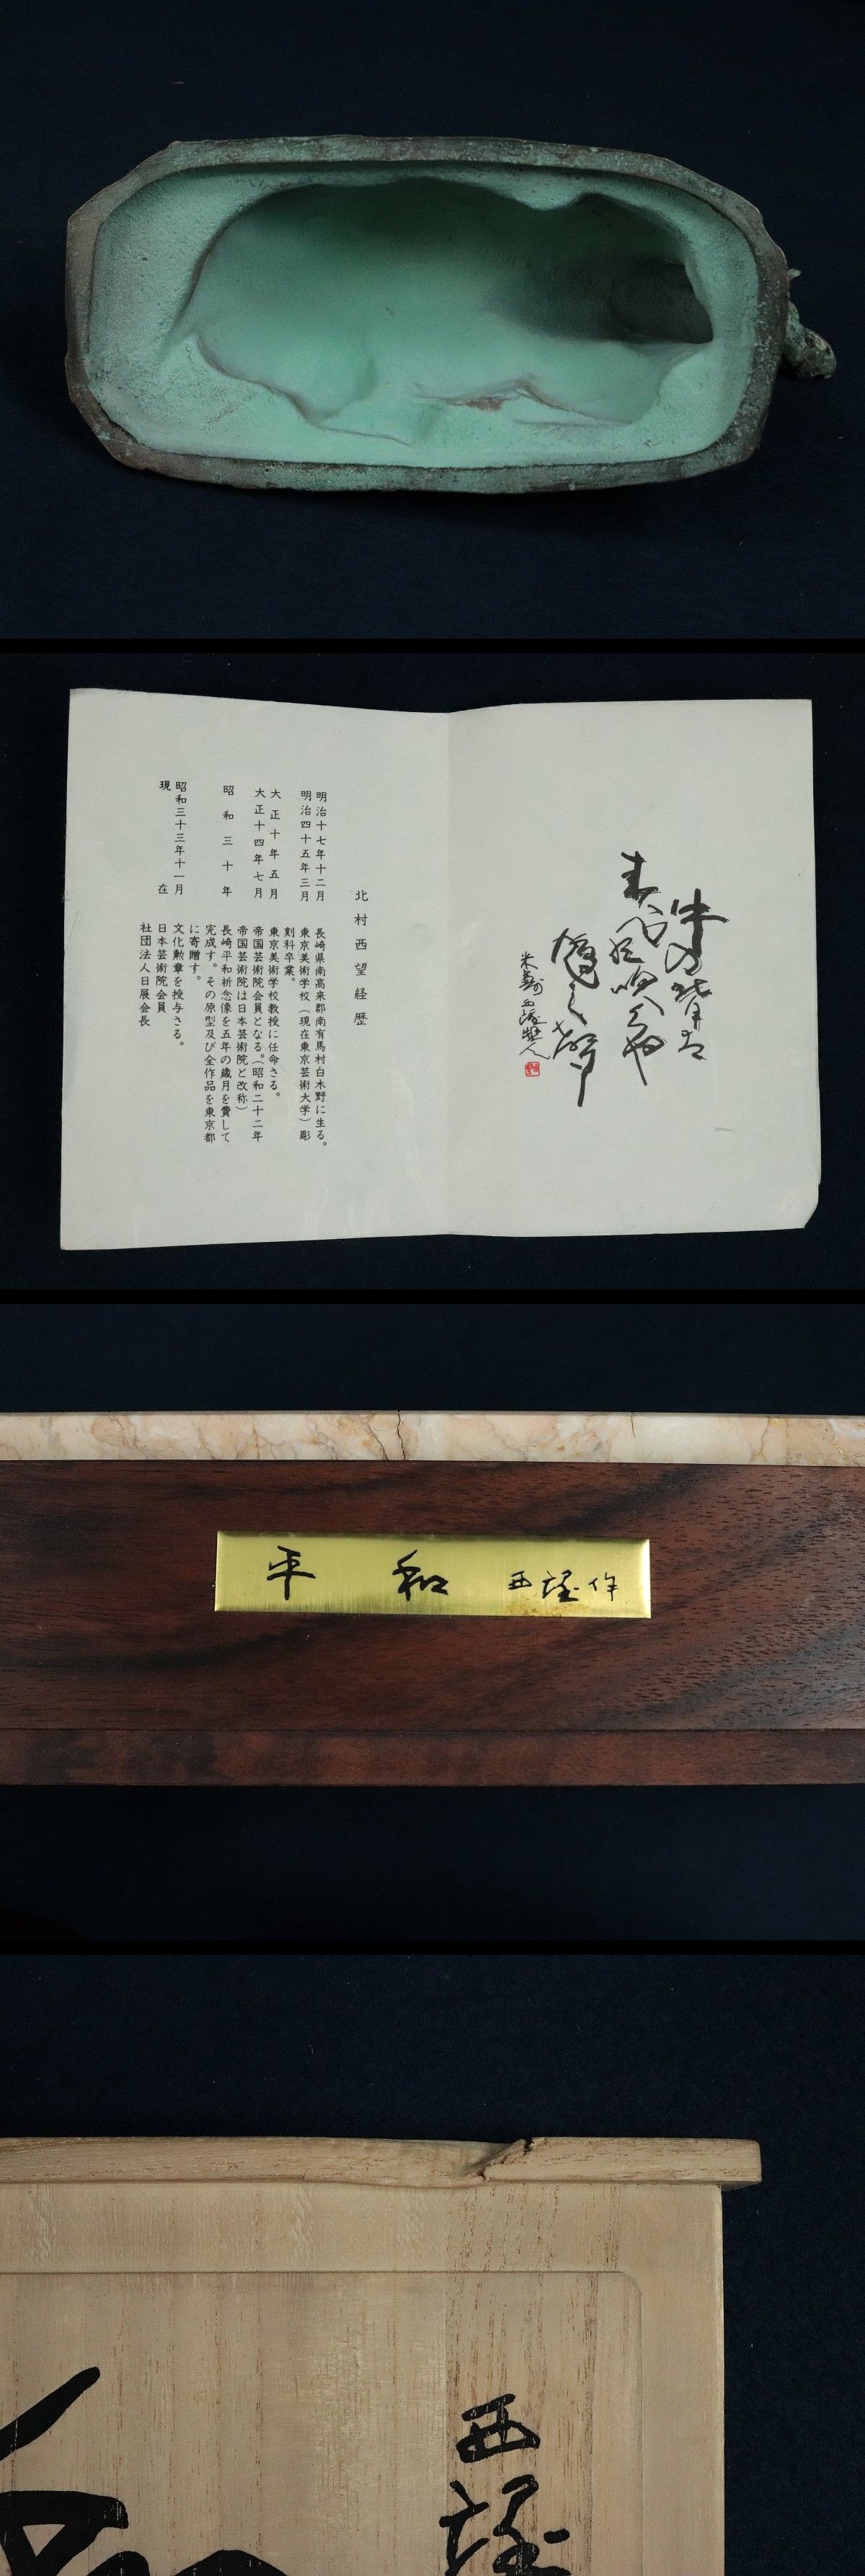 牛の背に
春風吹くや
米寿 西望
北村西望経歴
明治十七年十二月 長崎県南高来郡南有馬村白木野に生る。
明治四十五年三月 東京美術学校（現在東京芸術大学）彫
刻科卒業。
大正十年五月 東京美術学校教授に任命さる。
大正十四年七月 帝国芸術院会員となる。（昭和二十二年
帝国芸術院は日本芸術院と改称）
昭和三十年 長崎平和祈念像を五年の歳月を費して
完成す。その原型及び全作品を東京都
に寄贈す。
昭和三十三年十一月 文化勲章を授与さる。
現在 日本芸術院会員
社団法人日展会長
平和 西望作
西望